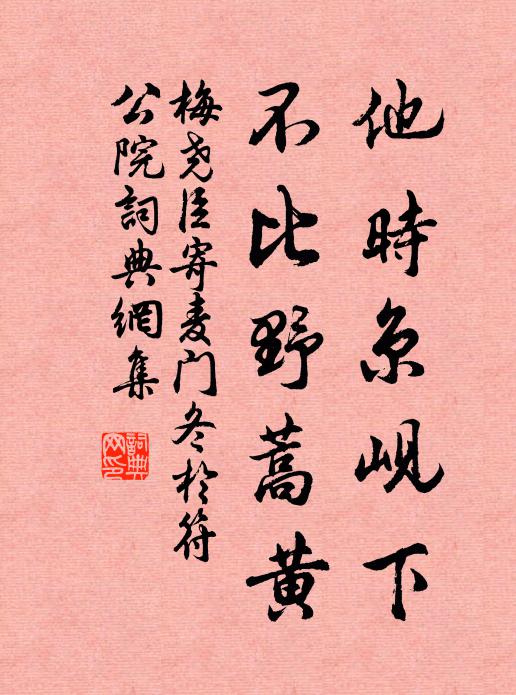 他時京峴下
不比野蒿黄
梅尧臣寄麦门冬於符
公院詞典網集
詞典
网印